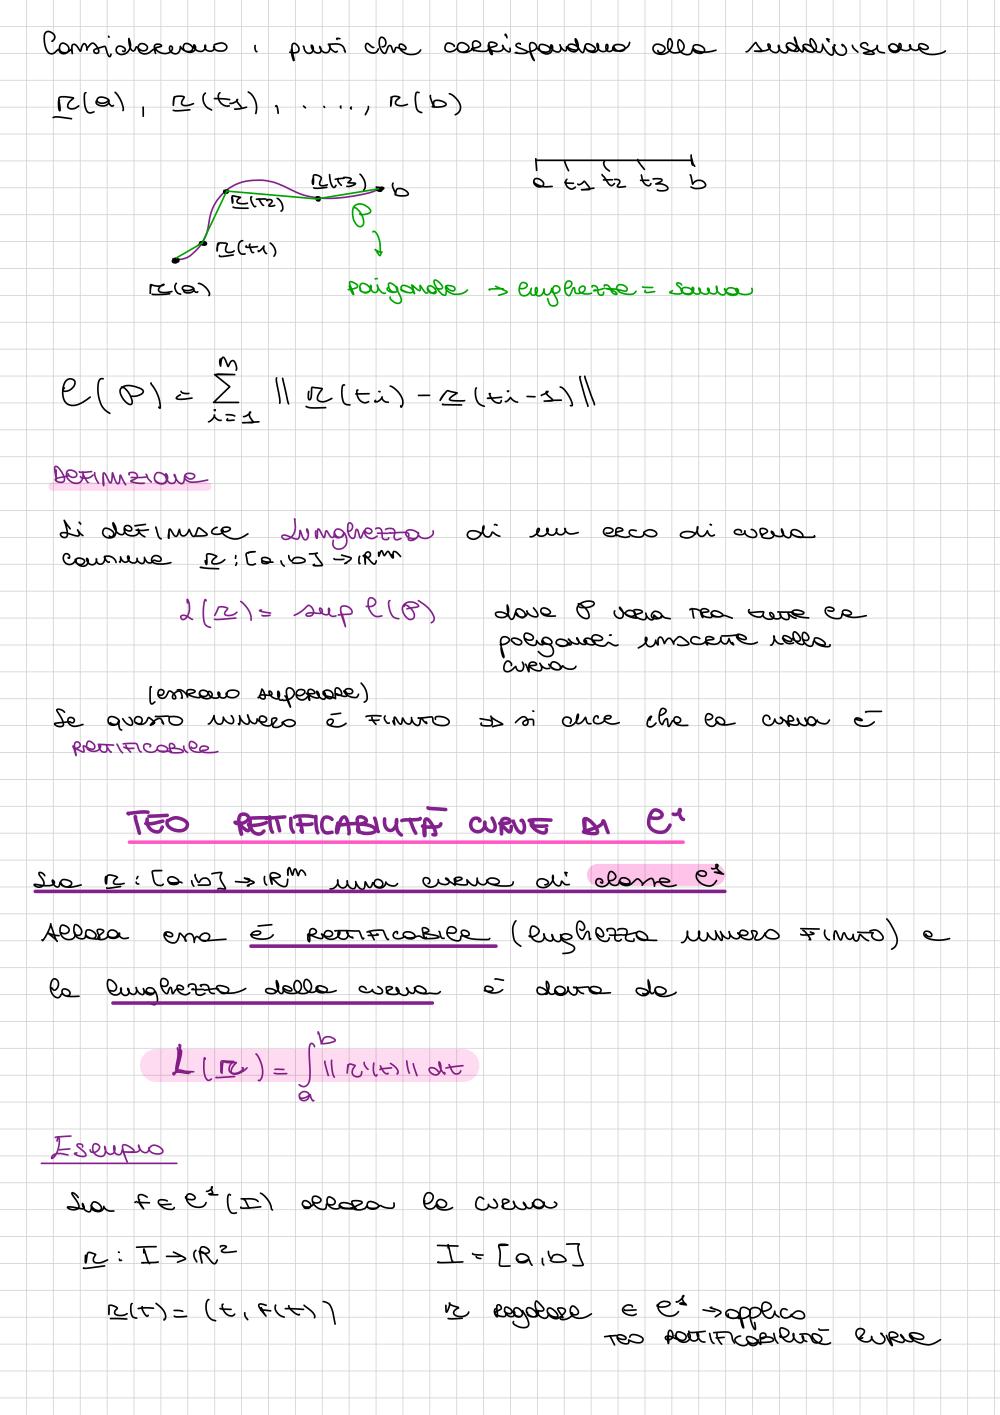 Consideriamo i punti che corrispondono alla suddivisione
r(a), r(t1), ...., r(b)
a t1 t2 t3 b
r(t3) b
r(t2)
P
r(t1)
r(a)
poligonale → lunghezza = somma
ℓ(P) = Σ_{i=1}^{m} || r(ti) - r(ti-1) ||
DEFINIZIONE
Si definisce Lunghezza di un arco di curva
continua r: [a,b] → ℝᵐ
L(r) = sup ℓ(P) dove P varia tra tutte le
poligonali inscritte nella
curva
(estremo superiore)
Se questo numero è finito ⇒ si dice che la curva è
rettificabile
TEO RETTIFICABILITÀ CURVE DI C¹
Sia r: [a,b] → ℝᵐ una curva di classe C¹
Allora essa è rettificabile (lughezza numero finito) e
la lunghezza della curva è data da
L(r) = ∫_a^b || r'(t) || dt
Esempio
Sia f ∈ C¹(I) allora la curva
r: I → ℝ² I = [a,b]
r(t) = (t, f(t)) r regolare ∈ C¹ → applico
TEO RETTIFICABILITÀ CURVE